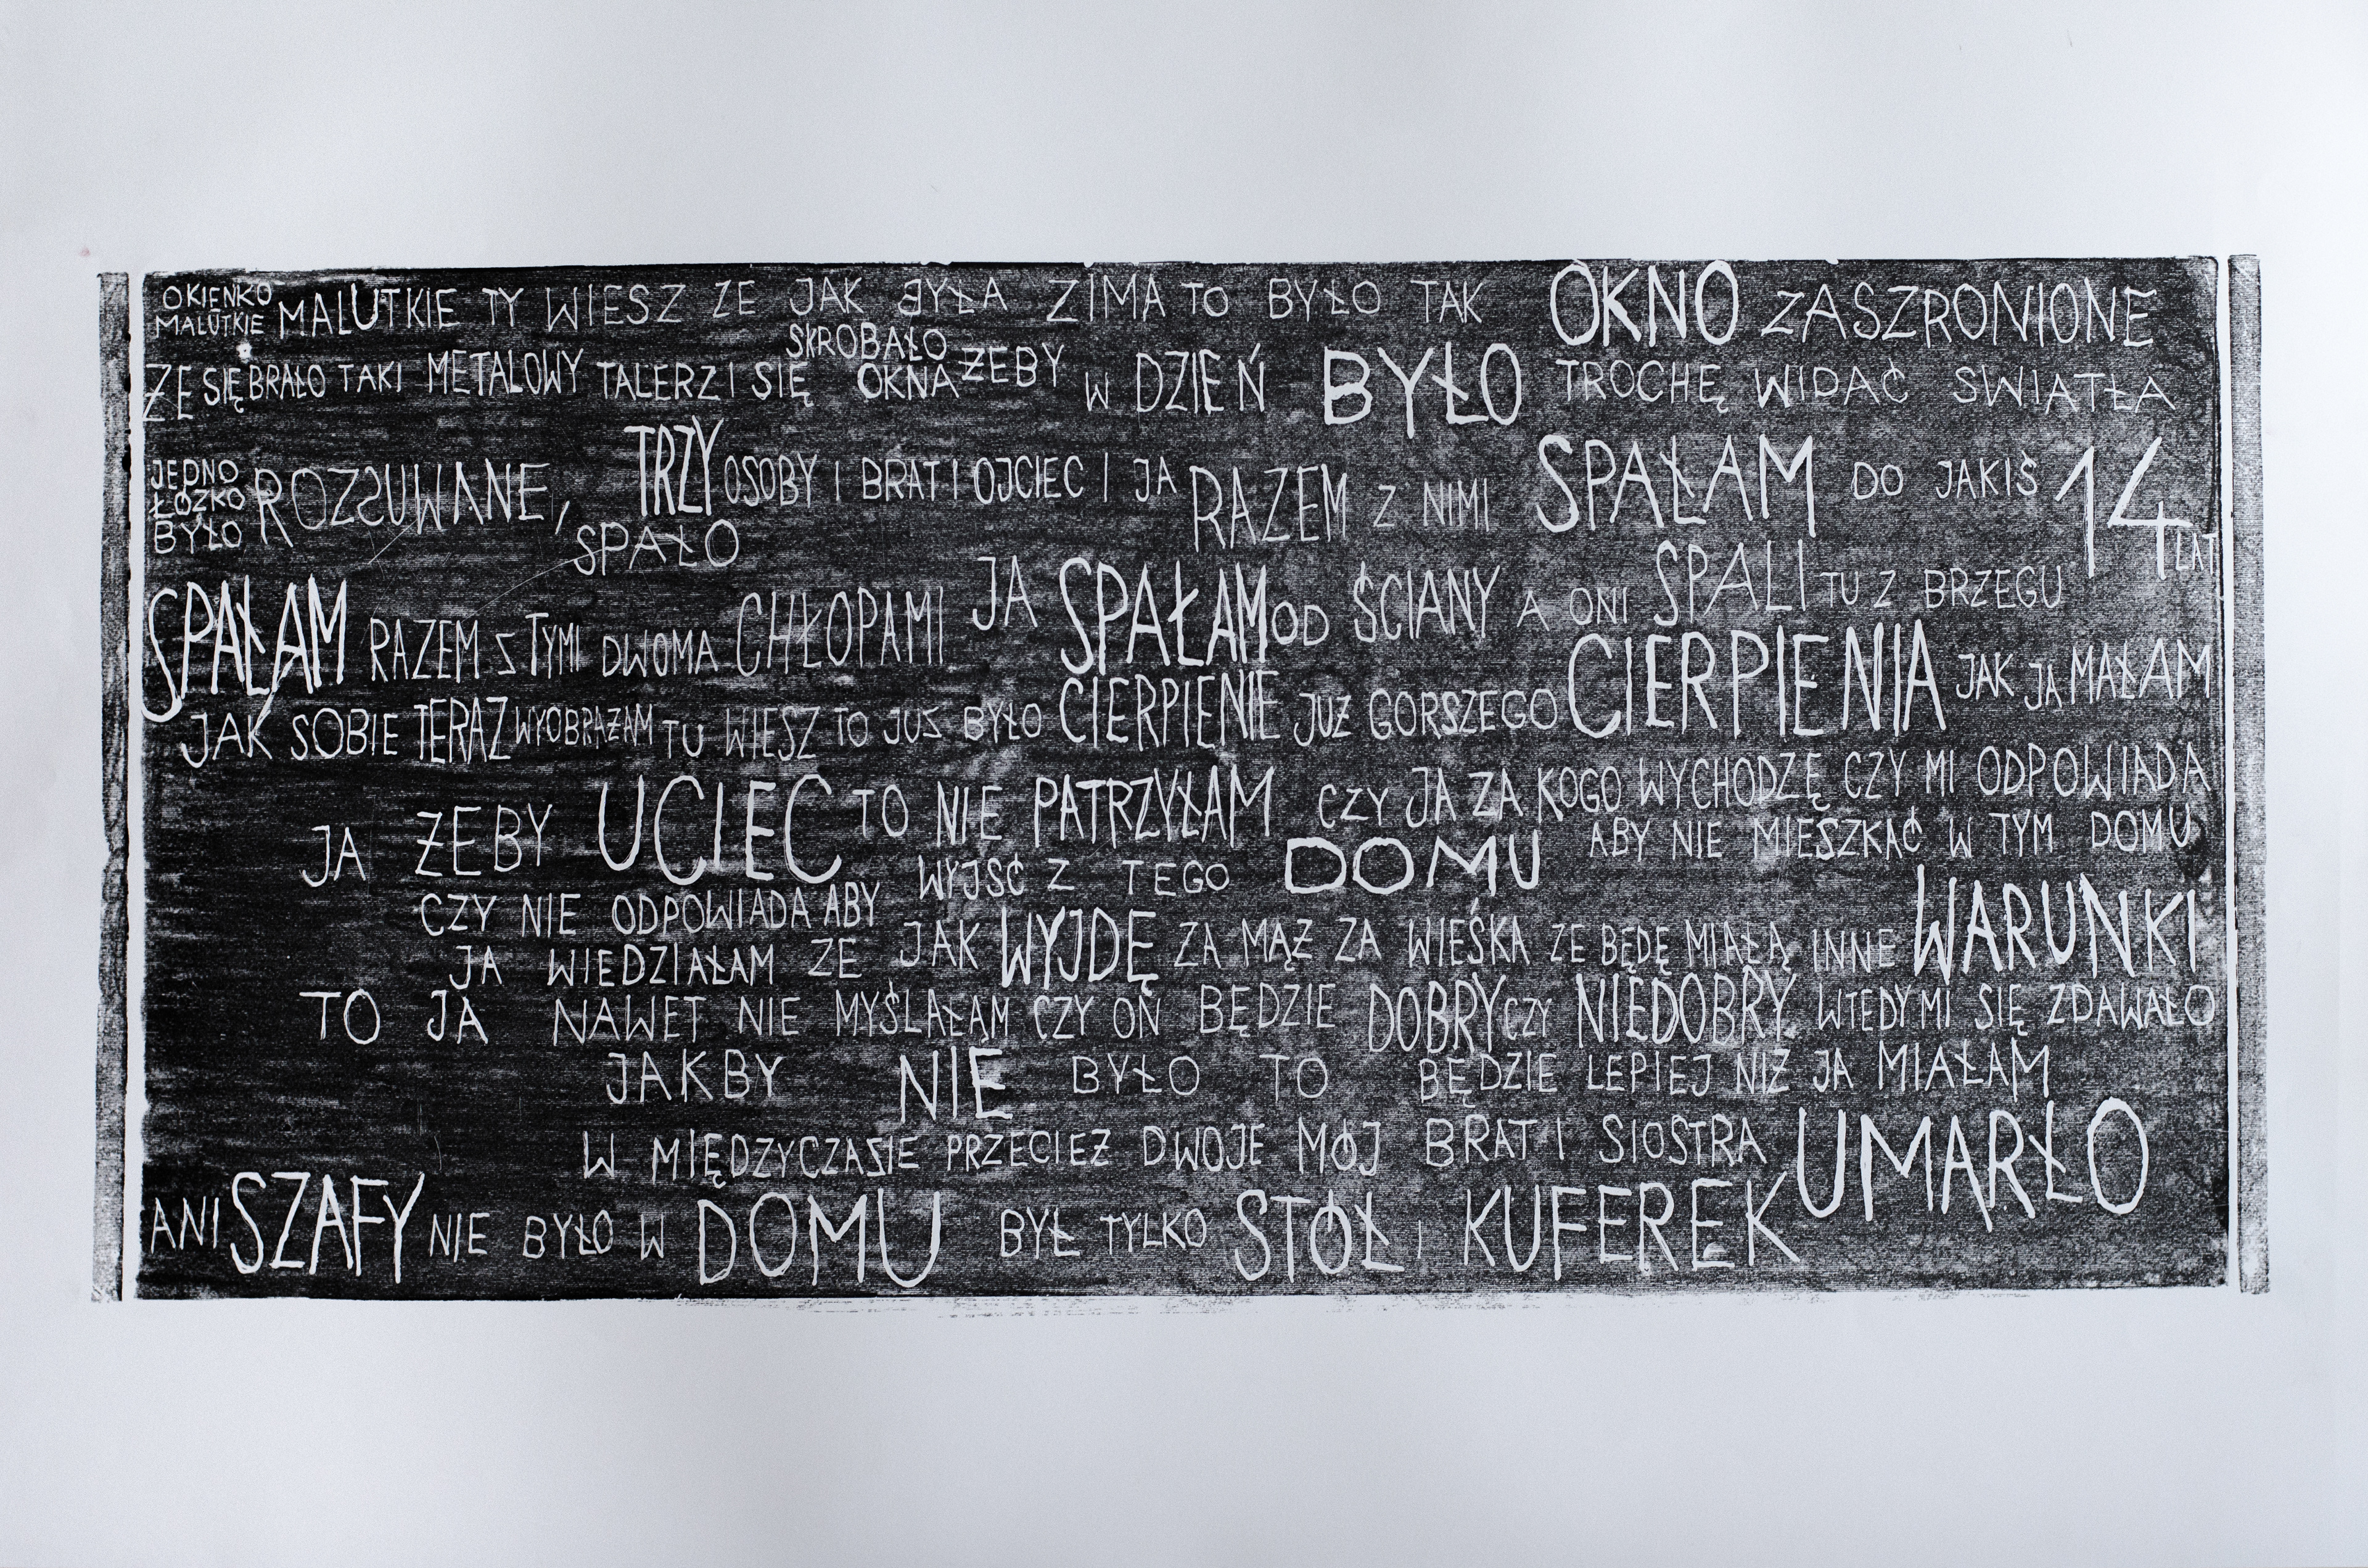 OKIENKO
MALUTKIE MALUTKIE TY WIESZ ZE JAK BYŁA ZIMA TO BYŁO TAK OKNO ZASZRONIONE
ZE SIĘ BRAŁO TAKI METALOWY TALERZ I SIĘ SKROBAŁO OKNA ŻEBY W DZIEŃ BYŁO TROCHĘ WIDAĆ SWIATŁA
JEDNO ŁÓŻKO BYŁO ROZSUWANE, TRZY OSOBY I BRAT I OJCIEC I JA RAZEM Z NIMI SPAŁAM DO JAKIŚ 14 LAT
SPAŁO
SPAŁAM RAZEM Z TYMI DWOMA CHŁOPAMI JA SPAŁAM OD ŚCIANY A ONI SPALI TU Z BRZEGU
JAK SOBIE TERAZ WYOBRAŻAM TU WIESZ TO JUZ BYŁO CIERPIENIE JUŻ GORSZEGO CIERPIENIA JAK JA MAŁAM
JA ŻEBY UCIEC TO NIE PATRZYŁAM CZY JA ZA KOGO WYCHODZĘ CZY MI ODPOWIADA
CZY NIE ODPOWIADA ABY WYJSĆ Z TEGO DOMU ABY NIE MIESZKAĆ W TYM DOMU
JA WIEDZIAŁAM ZE JAK WYJDĘ ZA MĄŻ ZA WIEŚKA ZE BĘDĘ MIAŁA INNE WARUNKI
TO JA NAWET NIE MYŚLAŁAM CZY ON BĘDZIE DOBRY CZY NIEDOBRY WTEDY MI SIĘ ZDAWAŁO
JAKBY NIE BYŁO TO BĘDZIE LEPIEJ NIŻ JA MIAŁAM
W MIĘDZYCZASIE PRZECIEŻ DWOJE MÓJ BRAT I SIOSTRA UMARŁO
ANI SZAFY NIE BYŁO W DOMU BYŁ TYLKO STÓŁ I KUFEREK